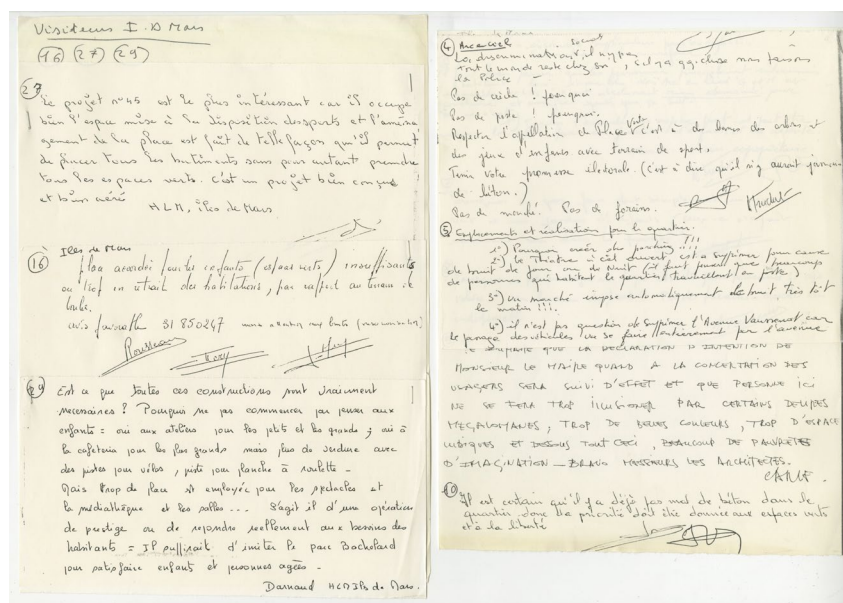 Visiteurs I. D Mars
(16) (27) (29)
27
Le projet n°45 est le plus intéressant car il occupe
bien l'espace mise à la disposition des sports et l'aména
gement de la place est fait de telle façons qu'il permet
de placer tous les batiments sans pour autant prendre
tous les espaces verts. C'est un projet bien conçu
et bien aéré
HLM, îles de Mars
16
Iles de Mars
place accordée pour les enfants (espaces verts) insuffisants
ou trop en retrait des habitations, par rapport au terrain de
boule.
avis favorable 31 850247
Rousseau
29
Est ce que toutes ces constructions sont vraiment
necessaires ? Pourquoi ne pas commencer par penser aux
enfants = oui aux ateliers pour les petits et les grands ; oui à
la cafeteria pour les plus grands mais plus de verdure avec
des pistes pour vélos, piste pour planche à roulette -
Mais trop de place est employée pour les spectacles et
la médiathèque et les salles ... S'agit il d'une opération
de prestige ou de repondre reellement aux besoins des
habitants = Il suffirait d'imiter le parc Bachelard
pour satisfaire enfants et personnes agées -
Darnaud HLM Iles de Mars.
4
La discrimination, il n'y pas
Tout le monde reste chez soi, s'il y a qq. chose nous faisons
la Police -
Pas de crèche ! pourquoi
Pas de poste ! pourquoi.
Respecter l'appellation de Place Verte c'est à dire des arbres et
des jeux d'enfants avec terrain de sport.
Tenir votre promesse électorale. (c'est à dire qu'il n'y auront jamais
de béton.)
Pas de marché. Pas de forains.
5 Emplacements et réalisations pour le quartier.
1°) Pourquoi créer des parkings !!!
2°) le Théâtre à ciel ouvert est a supprimer pour cause
de bruit de jour ou de Nuit (il faut penser que beaucoup
de personnes qui habitent le quartier travaillent en poste)
3°) Un marché impose automatiquement du bruit très tôt
le matin !!!.
4°) il n'est pas question de supprimer l'Avenue Vaussenat car
le passage des véhicules va se faire entièrement par l'avenue
JE SOUHAITE QUE LA DECLARATION D'INTENTION DE
MONSIEUR LE MAIRE QUAND A LA CONCERTATION DES
USAGERS SERA SUIVI D'EFFET ET QUE PERSONNE ICI
NE SE FERA TROP ILLUSIONER PAR CERTAINS DELIRES
MEGALOMANES, TROP DE BELLES COULEURS, TROP D'ESPACE
LUDIQUES ET DESSOUS TOUT CECI, BEAUCOUP DE PAUVRETES
D'IMAGINATION - BRAVO MESSIEURS LES ARCHITECTES.
10
Il est certain qu'il y a déjà pas mal de béton dans le
quartier donc la priorité doit être donnée aux espaces verts
et à la liberté